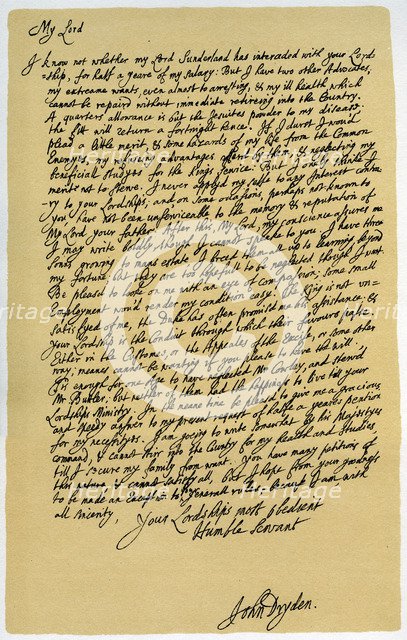 My Lord
I know not whether my Lord Sunderland has interceded with your Lord=
=ship, for half a yeare of my salary: But I have two other Advocates,
my extreame wants, even almost to arresting, & my ill health, which
cannot be repaird without immediate retireing into the Country.
A quarters allowance is but the Jesuites powder to my disease;
the fitt will return a fortnight hence. If I durst I wou'd
plead a little merit, & some hazards of my life from the Common
Enemyes, my refuseing advantages offerd by them, & neglecting my
beneficiall studyes for the Kings service: But I onely thinke I
merit not to sterve. I never applyd my selfe to any Interest contra=
=ry to your Lordships; and on some occasions, perhaps not known to
you, have not been unserviceable to the memory & reputation of
My Lord your father. After this, My Lord, my conscience assures me
I may write boldly, though I cannot speake to you. I have three
Sonns growing to mans estate, I breed them all up to learning, beyond
my fortune; but they are too hopefull to be neglected though I want.
Be pleasd to looke on me with an eye of compassion; some small
Employment wou'd render my condition easy. The King is not un=
satisfyed of me, the Duke has often promisd me his assistance; &
your Lordship is the Conduit through which their favours passe.
Either in the Customes, or the Appeales of the Excise, or some other
way; meanes cannot be wanting if you please to have the will.
Tis enough for one Age to have neglected Mr Cowley, and sterv'd
Mr Butler; but neither of them had the happiness to live till your
Lordships Ministry. In the meane time be pleasd to give me a gracious
and speedy answer to my present request of halfe a yeares pention
for my necessityes. I am going to write somewhat by his Majestyes
command, & cannot stirr into the Country for my health and studies,
till I secure my family from want. You have many petitions of
this nature, & cannot satisfy all, but I hope from your goodness
to be made an exception to your generall rules; because I am, with
all sincerity,
Your Lordships most obedient
Humble Servant
John Dryden.
Heritage
Heritage
Heritage
Heritage
©